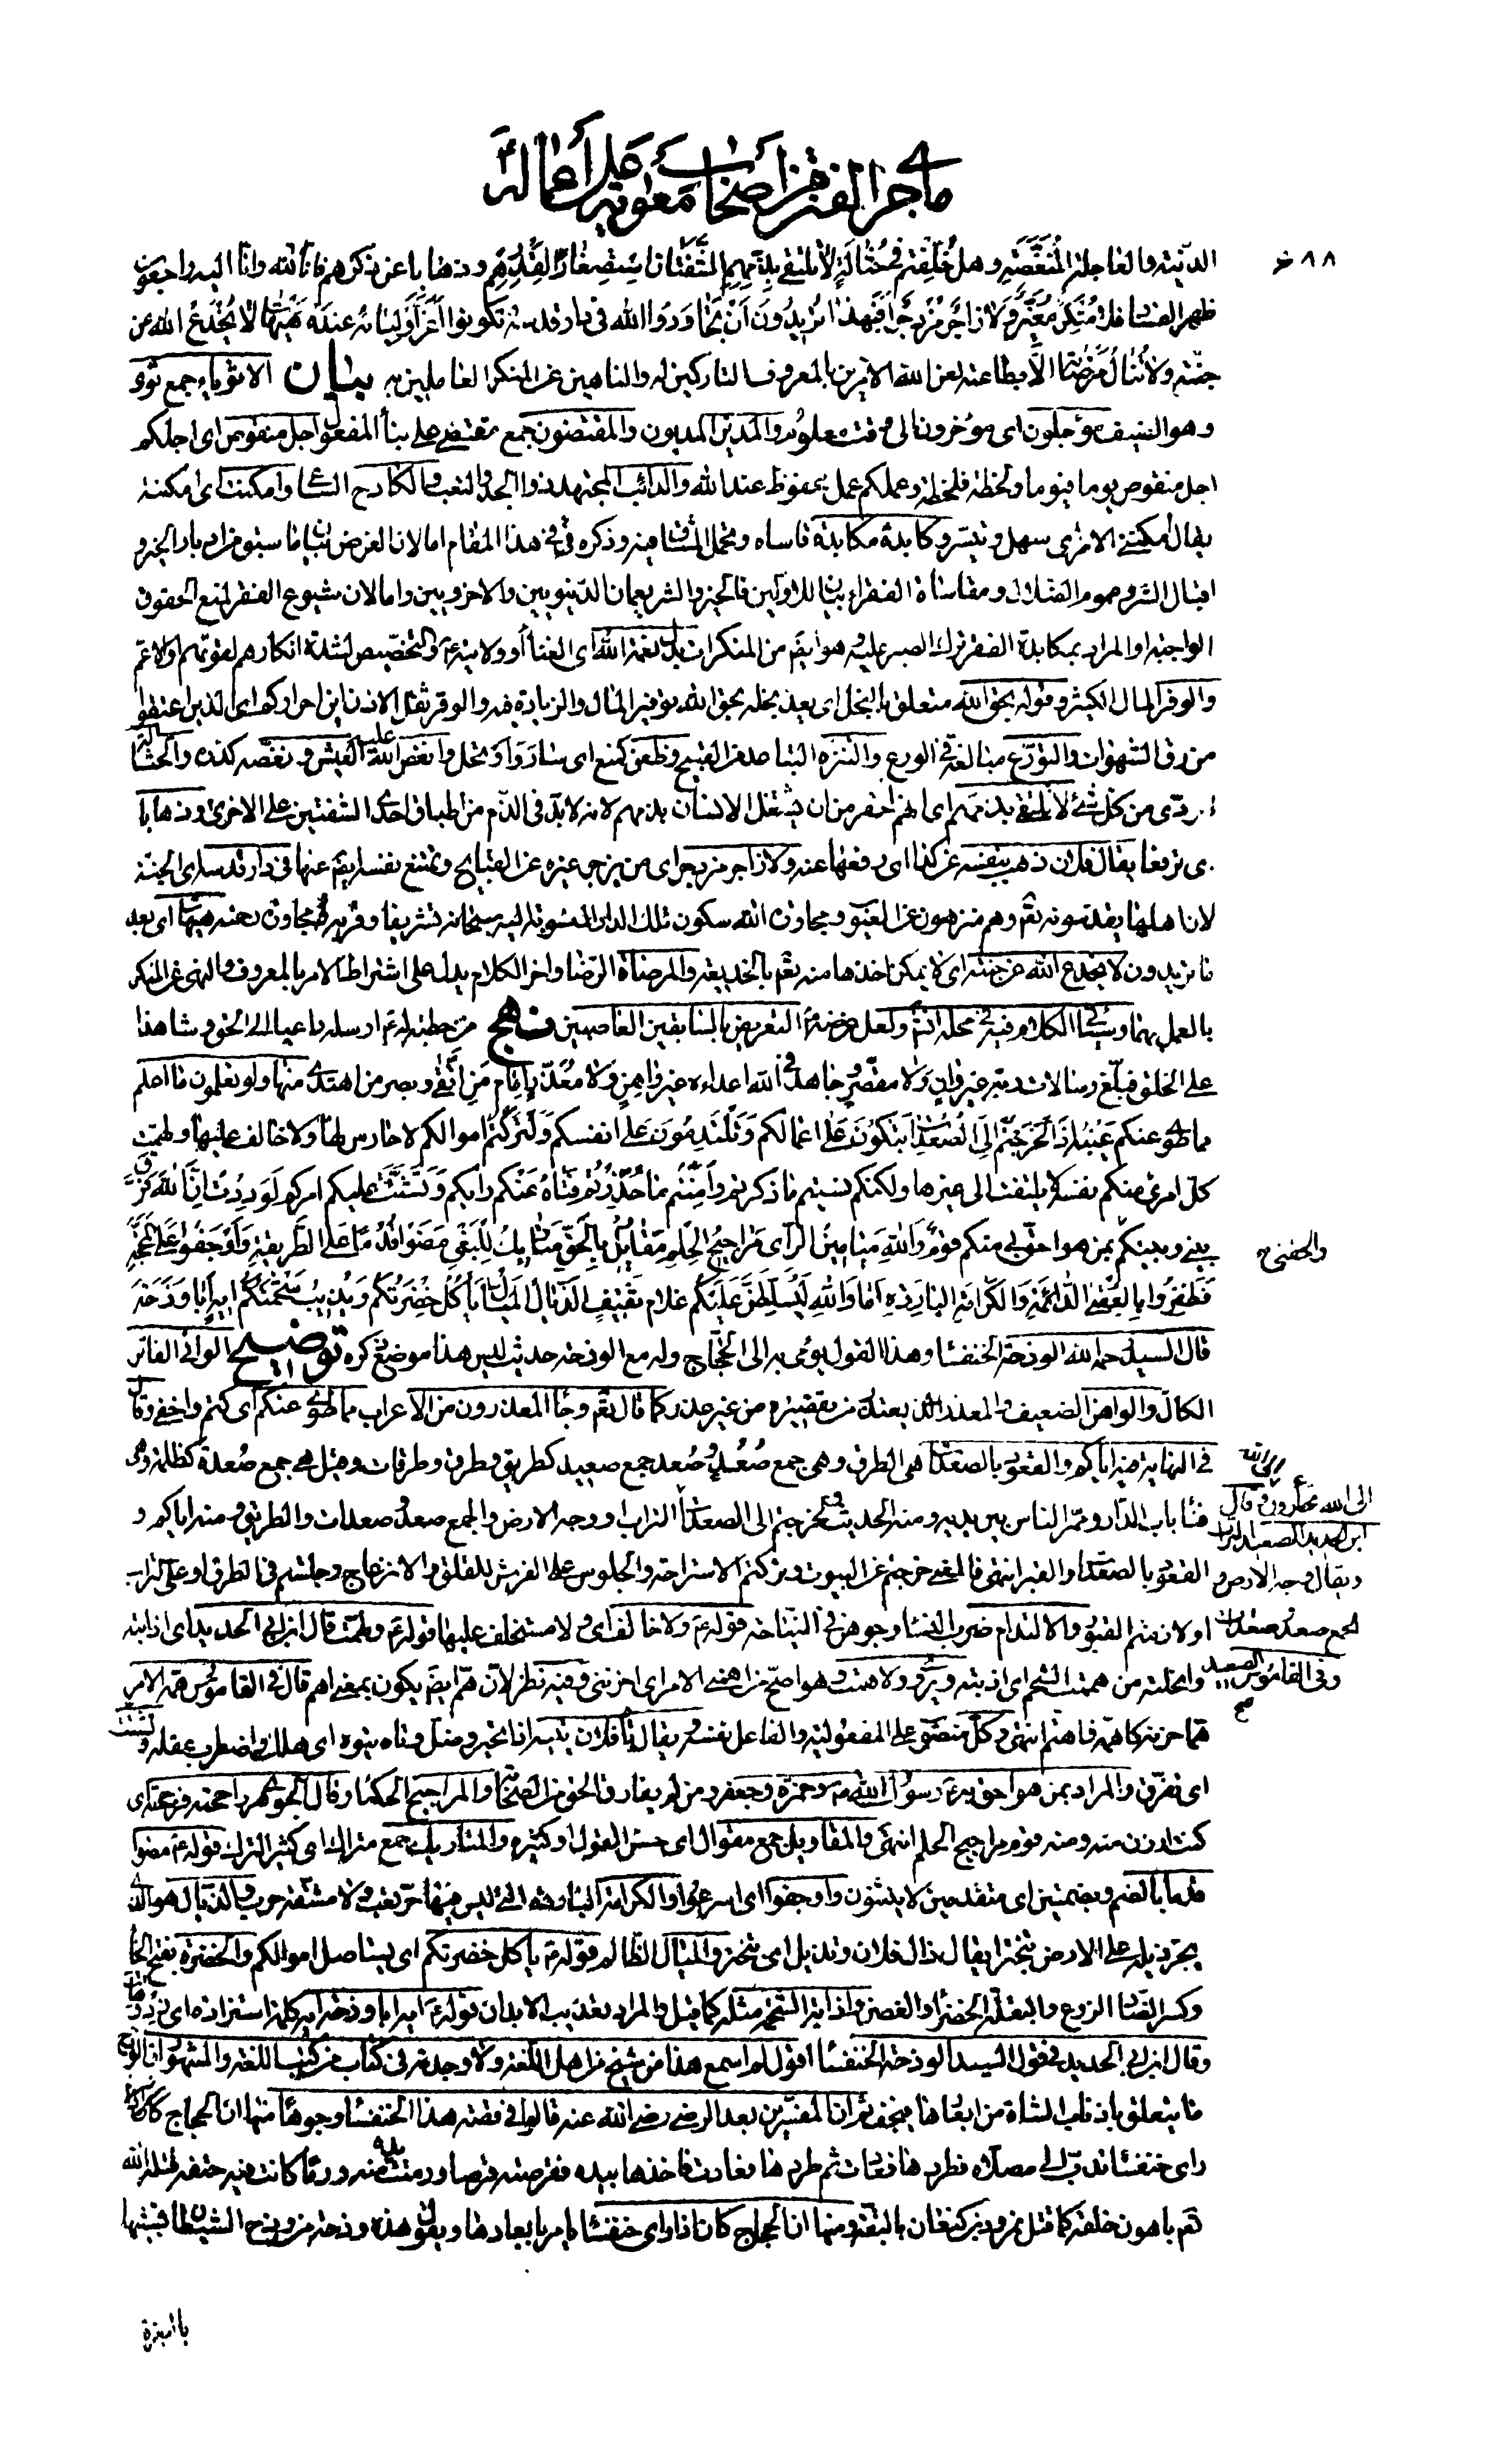 ماجرا الفتن من اصحاب معوية على اعماله
٦٨٨
الدّنيّة والعاجلة المُنَغَّصَةِ وهل خُلِقتم في حُثالَةٍ لا تلتقى بذمّهم الشّفتان استصغارا لقدرهم وذهابا عن ذكرهم فانا لله وانا اليه راجعون
ظهر الفساد فلا مُنكِرٌ مُغَيِّرٌ ولا زاجرٌ مُزدَجِرٌ افبهذا تُريدُونَ اَنْ تُجاوِرُوا الله في دار قدسه وتكونوا اَعَزَّ اَوليائه عنده هَيهاتَ لا يُخْدَعُ الله عن
جنّته ولا تُنالُ مَرضاتُهُ الّا بطاعته لعن الله الآمرين بالمعروف التاركين له والناهين عن المنكر العاملين به بيان الاثوياء جمع ثوىّ
وهو الضيف مؤجلون اى مؤخرون الى وقت معلوم والمدين المديون والمقتضون جمع مقتضى على بناء المفعول اجل منقوص اى اجلكم
اجل منقوص يوما فيوما ولحظة فلحظة وعملكم عمل محفوظ عند الله والدائب المجتهد ذو الجد والتعب والكادح الساعى وامكنت اى امكنته
يقال امكننى الامر اى سهل وتيسر وكابدة مكابدة قاساه وتحمل المشاق فيه وذكره في هذا المقام اما لان الغرض بيان ما سبق من ادبار الخير و
اقبال الشر وعموم الضلال ومقاساة الفقراء بيان للاولين فالخير والشر يعمان الدنيويين والاخرويين واما لان شيوع الفقر لمنع الحقوق
الواجبة او المراد بمكابدة الفقر ترك الصبر عليه وهو ايضا من المنكرات بدل نعمة الله اى الغنا أو ولايته ع والتخصيص لشدة انكارهم لفوتهم او لاعم
والوفر المال الكثير وقوله بحق الله متعلق بالبخل اى يعد بخله بحق الله توفير المال والزيادة فيه والوقر ثقل الاذن اين احراركم اى الذين اعتقوا
من رق الشهوات والتورّع مبالغة في الورع والتنزه التباعد من القبيح وظعن كمنع اى سار وارتحل وانغص الله عليه العيش ونغصه كدره والحثالة
الردى من كل شئ لا تلتقى بذمهم اى انهم احقر من ان يشتغل الانسان بذمهم لانه لابد في الذم من اطباق احدى الشفتين على الاخرى وذهابا
اى ترفعا يقال فلان ذهب بنفسه عن كذا اى رفعها عنه ولا زاجر مزدجر اى من يزجر غيره عن القبايح ويمنع نفسه ايضا عنها في دار قدسه اى الجنة
لان اهلها يقدسونه تعالى وهم منزهون عن العيوب ومجاورة الله سكون تلك الدار المنسوبة اليه سبحانه تشريفا وقربه او مجاورة رحمته هيهات اى بعد
ما تريدون لا يخدع الله عن جنته اى لا يمكن اخذها منه تعالى بالخديعة والمرضاة الرضا واخر الكلام يدل على اشتراط الامر بالمعروف والنهى عن المنكر
بالعمل بهما وسيأتى الكلام فيه في محله انشاء الله ولعل غرضه ع التعريض بالسابقين الغاصبين نهج من خطبة له ع ارسله داعيا الى الحق وشاهدا
على الخلق فبلّغ رسالات ربّه غير وانٍ وَلا مقصّرٍ وجاهد في الله اعداءه غير واهِنٍ ولا مُعَذِّرٍ اِمامُ مَنِ اتَّقى وبصر من اهتدى منها ولو تعلمون ما اعلم
مما طُوى عنكم غَيبُه اذاً لَخَرجتُم اِلَى الصُّعُداتِ تَبكُونَ عَلى اعمالكم وَتَلْتَدِمُونَ عَلى انفسكم وَلَتَرَكْتُم اموالكم لا حارس لها ولا خالف عليها ولهمّت
كلّ امرئ منكم نفسه لا يلتفت الى غيرها ولكنكم نسيتم ما ذكرتم وَاَمِنتُم ما حُذِّرتُم فتاهَ عَنكُم رأيكم وَتَشَتَّتَ عليكم امركم لَوَدِدْتُ اَنَّ اللهَ فَرَّقَ
بينى وبينكم والحقنى بمن هو احق بى منكم قومٌ وَاللهِ مَيامِينُ الرّأى مَراجيحُ الحِلمِ مَقاوِيلُ بِالحَقِّ مَتاريكُ لِلبَغىِ مَضَوا قُدُماً عَلَى الطَّريقةِ وَاَوجَفُوا عَلَى المَحَجَّةِ
فَظَفِرُوا بِالعُقبَى الدّائمة وَالكَرامةِ الباردةِ اَما وَاللهِ لَيُسَلَّطَنَّ عَلَيكُم غلام ثقيفٍ الذيّالُ المَيّالُ يَأكُلُ خَضِرَتَكُم وَيُذيبُ شَحمَتَكُم ايهٍ اَبا وَذَحَة
قال السيد رحمه الله الوذحة الخنفساء وهذا القول يومى به الى الحجّاج وله مع الوذحة حديث ليس هذا موضع ذكره توضيح الوانى الفاتر
الكالّ والواهن الضعيف والمعذر الذى يعتذر من تقصيره من غير عذر كما قال تعالى وجاء المعذرون من الاعراب مما طوى عنكم اى كتم واخفى وقال
في النهاية فيه اياكم والقعود بالصعدات هى الطرق وهى جمع صُعُدٍ وصُعد جمع صعيد كطريق وطرق وطرقات وقيل هى جمع صُعدة كظلمة وهى
فناء باب الدار وممرّ الناس بين يديه ومنه الحديث ولخرجتم الى الصعدات التراب ووجه الارض والجمع صعد وصعدات والطريق ومنه اياكم و
القعود بالصعدات والقبر انتهى فالمعنى خرجتم عن البيوت وتركتم الاستراحة والجلوس على الفرش للقلق والانزعاج وجلستم في الطرق او على التراب
او لازمتم القبور والالتدام ضرب النساء وجوههن في النياحة قوله ع ولا خالف اى ولا مستخلف عليها قوله ع ولهمّت قال ابن ابى الحديد اى اذابته
وانحلته من هممت الشحم اى اذبته ويروى ولاهمّت وهو اصحّ من اهمنى الامر اى احزننى وفيه نظر لان همّ ايضا يكون بمعنى اهمّ قال في القاموس همّه الامر
همّا حزنه كاهمّه فاهتم انتهى وكلّ منصوب على المفعولية والفاعل نفسه ويقال تاه فلان يتيه اذا تحير وضل وتاه يتوه اى هلك واضطرب عقله وتشتّت
اى تفرّق والمراد بمن هو احق به ع رسول الله ص وحمزة وجعفر ومن لم يفارق الحق من الصحابة والمراجيح الحكماء وقال الجوهرى راجحته فرجحته اى
كنت ارزن منه ومنه قوم مراجيح الحلم انتهى والمقاويل جمع مقوال اى حسن القول او كثيره والمتاريك جمع متراك اى كثير الترك قوله ع مضوا
قدما بالضم وبضمتين اى متقدمين لا ينثنون واوجفوا اى اسرعوا والكرامة الباردة التى ليس فيها حرّ تعب ولا مشقة حرب والذيّال هو الذى
يجرّ ذيله على الارض تبخترا يقال ذال فلان وتذيل اى تبختر والميال الظالم قوله ع يأكل خضرتكم اى يستاصل اموالكم والخضرة بفتح الخاء
وكسر الضاد الزرع والبقلة الخضراء والغصن واذابة الشحمة مثله كما قيل والمراد تعذيب الابدان قوله ع ايه ابا وذحة ايه كلمة استزادة اى زد وهات
وقال ابن ابى الحديد في قول السيد الوذحة الخنفساء اقول لم اسمع هذا من شيخ من اهل اللغة ولا وجدته في كتاب من كتب اللغة والمشهور ان الوذح
ما يتعلق باذناب الشاة من ابعارها فيجف ثم ان المفسّرين بعد الرضى رضى الله عنه قالوا في قصة هذا الخنفساء وجوها منها ان الحجاج كان
راى خنفساء تدبّ الى مصلاه فطردها فعادت ثم طردها فعادت فاخذها بيده فقرصته قرصا ورمت يده منه وربما كانت فيه حتفه قتله الله
تعالى باهون خلقه كما قتل نمرود بن كنعان بالبقّة ومنها ان الحجاج كان اذا راى خنفساء يامر بابعادها ويقول هذه وذحة من وذح الشيطان تشبيها
والحقنى
الى الله
الى الله تجأرون وقال
ابن ابى الحديد الصعيد التراب
ويقال وجه الارض و
الجمع صعد وصعدات
وفى القاموس الصعيد
صح